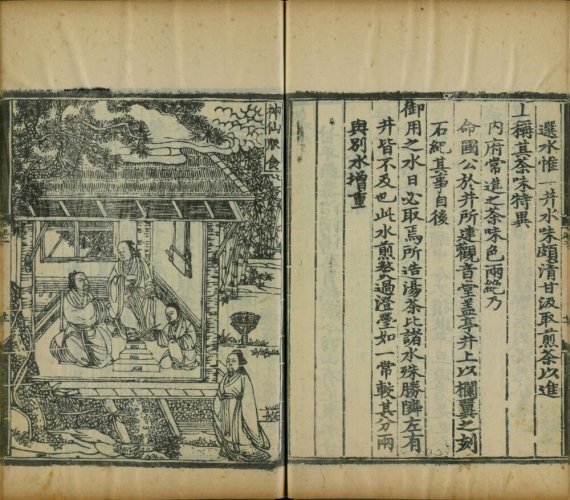 選水惟一井水味頗清甘汲取煎茶以進
上稱其茶味特異
内府常進之茶味色兩絶乃
命國公於井所建觀音堂盖亭井上以欄翼之刻
石紀其事自後
御用之水日必取焉所造湯茶比諸水殊勝隣左有
井皆不及也此水煎熬過澄瑩如一常較其分兩
與別水增重
神仙服食